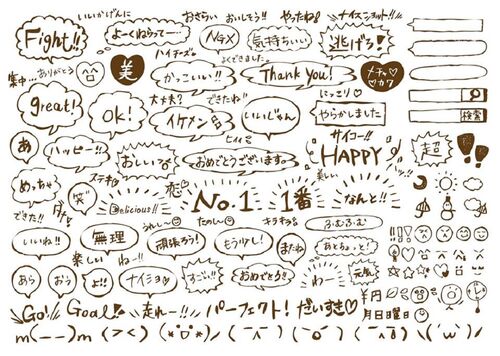 いいかげんに
おさらい
おいしそう!
やったね!
ナイスショット!!
Fight!!
よーくねらってー…
ハイチーズ
NGX
気持ちいい
逃げろ!
よくできました。
集中…
ありがとう
美
かっこいい!!
Thank You!
メチャ♡カワ
great!
OK!
大丈夫?
できたね!!
にっこり♡
イケメン
いいじゃん
やらかしました
検索
あ
ハッピー!!
おしいっ
おめでとうございます。
サイコー!!
HAPPY
超
!!
めっちゃ
ステキ
笑
恋
美しい
できた!!
Delicious!!
No.1
1番
なんと!!
いいね!!
無理
うれしー
頑張ろう!
たのしー
もう少し!
キラキラ
またね
ふむふむ
あとちょっと!
楽しい
ねー!!
あら
おぅ
よ!!
ナイショ♡
すごい!!
おめでとう!!
わー!!
元気
Go!
Goal!
走れー!!
パーフェクト!
だいすき♡
円
月日曜日
m(__)m
(><)